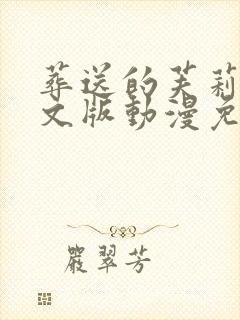 葬送的芙莉
文版動漫免
嚴翠芳